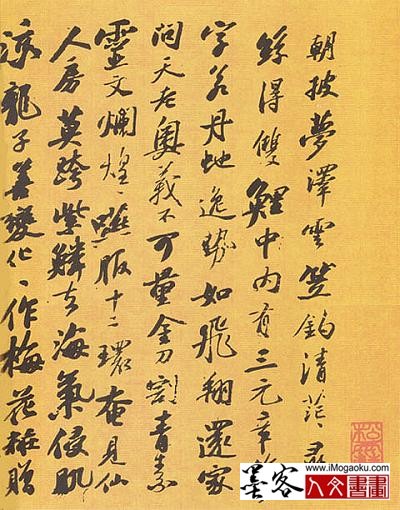 朝披夢澤雲笠釣清茫〻尋
絲得雙鯉中內有三元章
字若丹虵逸勢如飛翔還家
問天老奧義不可量金刀割青素
靈文爛煌〻嚥服十二環奄見仙
人房莫跨紫鱗去海氣侵肌
涼龍子善變化〻作梅花粧贈
www.iMogaoku.com
墨客人文書畫